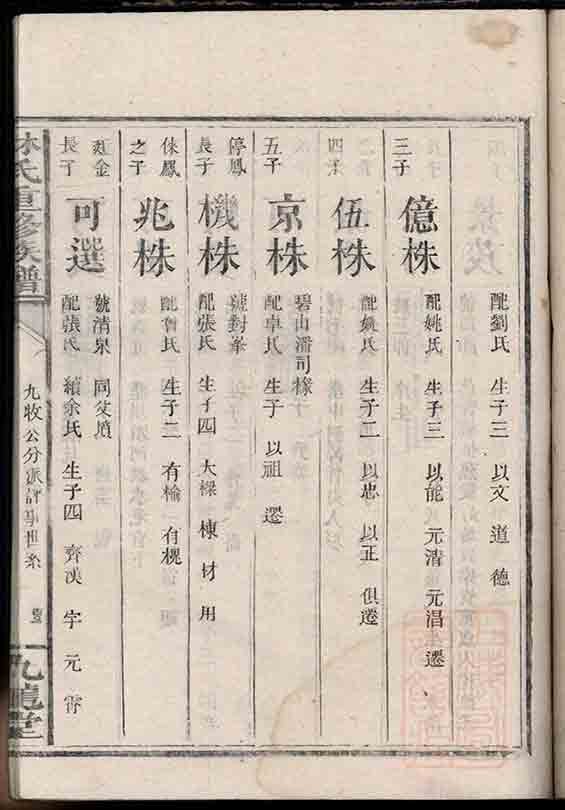 配劉氏 生子三 以文 道 德
三子 億株 配姚氏 生子三 以能 元清 元昌 遷
四子 伍株 配姚氏 生子二 以忠 以正 俱遷
五子 京株 碧山潘司椽
配卓氏 生子 以祖 遷
停鳳長子 機株 號對峯
配張氏 生子四 大樑 棟 材 用
侏鳳之子 兆株 配曾氏 生子二 有榆 有槐
廷金長子 可選 號清泉 同父墳
配張氏 續余氏 生子四 齊漢 宇 元 霄
林氏重修族譜
九牧公分派 世系
九龍堂